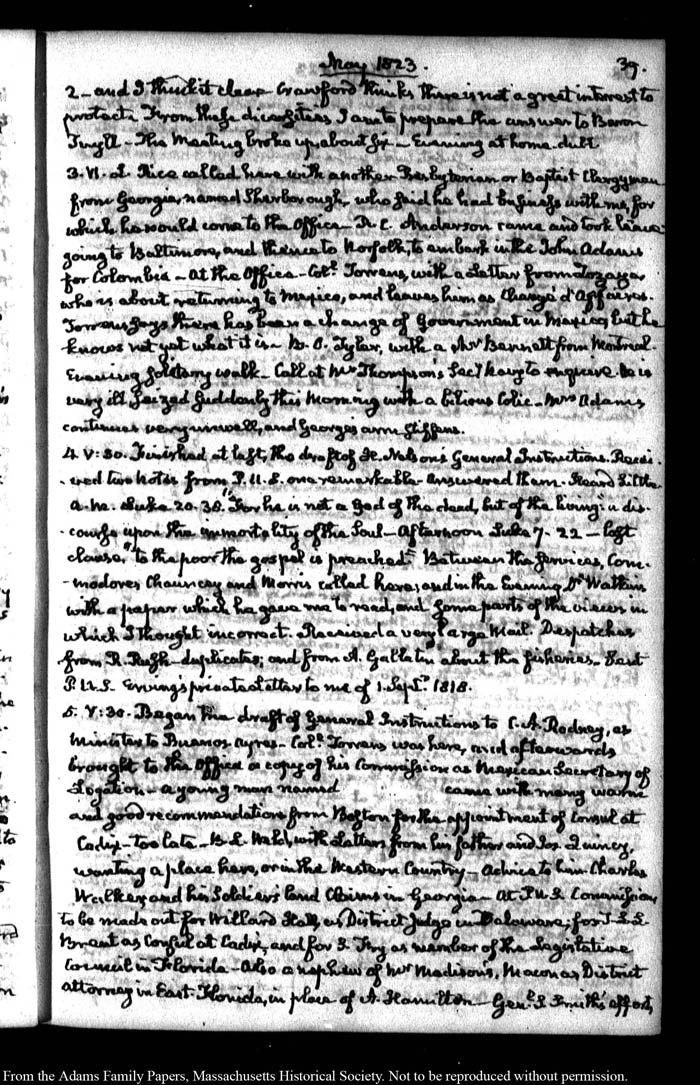 May 1823. 39.
2 - and I think it clear Crawford thinks there is not a great interest to
protect. From these diversities I am to prepare the answer to Baron
Tuyll - The Meeting broke up about six - Evening at home. dull
3. VI. L. Rice called here with another Presbyterian or Baptist Clergyman
from Georgia, named Sherborough, who said he had business with me, for
which he would come to the Office - R. C. Anderson came and took leave
going to Baltimore, and thence to Norfolk, to embark in the John Adams
for Colombia - At the Office - Coll. Torrens, with a Letter from Zozaya,
who is about returning to Mexico, and leaves him as Chargé d'Affaires.
Torrens says there has been a change of Government in Mexico, but he
knows not yet what it is - B. O. Tyler, with a Mr Bennett from Montreal.
Evening solitary walk. Call at Mr Thompson's, Secy Navy to enquire. He is
very ill. Seized suddenly this Morning with a bilious Colic - Mrs Adams
continues very unwell, and George's arm stiffens.
4. V:30. Finished at last, the draft of H. Nelson's General Instructions. Recei-
-ved two notes from P. U. S. one remarkable. Answered them. Heard Little
A. M. Luke 20. 38. "For he is not a God of the dead, but of the living: a dis-
-course upon the immortality of the Soul - Afternoon Luke 7. 22 - last
clause, "to the poor the gospel is preached" Between the services, Com-
-modores Chauncey and Morris called here; and in the Evening Dr Watkins
with a paper which he gave me to read, and some parts of the views in
which I thought incorrect. Received a very large Mail. Despatches
from R. Rush - duplicates; and from A. Gallatin about the fisheries - Sent
P. U. S. Erving's private Letter to me of 1. Septr. 1818.
5. V:30. Began the draft of General Instructions to C. A. Rodney, as
Minister to Buenos Ayres - Coll. Torrens was here, and afterwards
brought to the Office a copy of his Commission as Mexican Secretary of
Legation - a young man named came with many warm
and good recommendations from Boston for the appointment of Consul at
Cadiz - too late - B. L. Weld, with Letters from his father and Jos. Quincy,
wanting a place here, or in the Western Country - Advice to him. Charles
Walker and his Soldiers land Claims in Georgia - At P. U. S. Commission
to be made out for Willard Hall, as District Judge in Delaware; for J. L. L.
Brent as Consul at Cadiz, and for J. Fry as member of the Legislative
Council in Florida - Also a nephew of Mr Madison's, Macon as District
Attorney in East-Florida, in place of A. Hamilton - Genl. S. Smith's efforts,
From the Adams Family Papers, Massachusetts Historical Society. Not to be reproduced without permission.